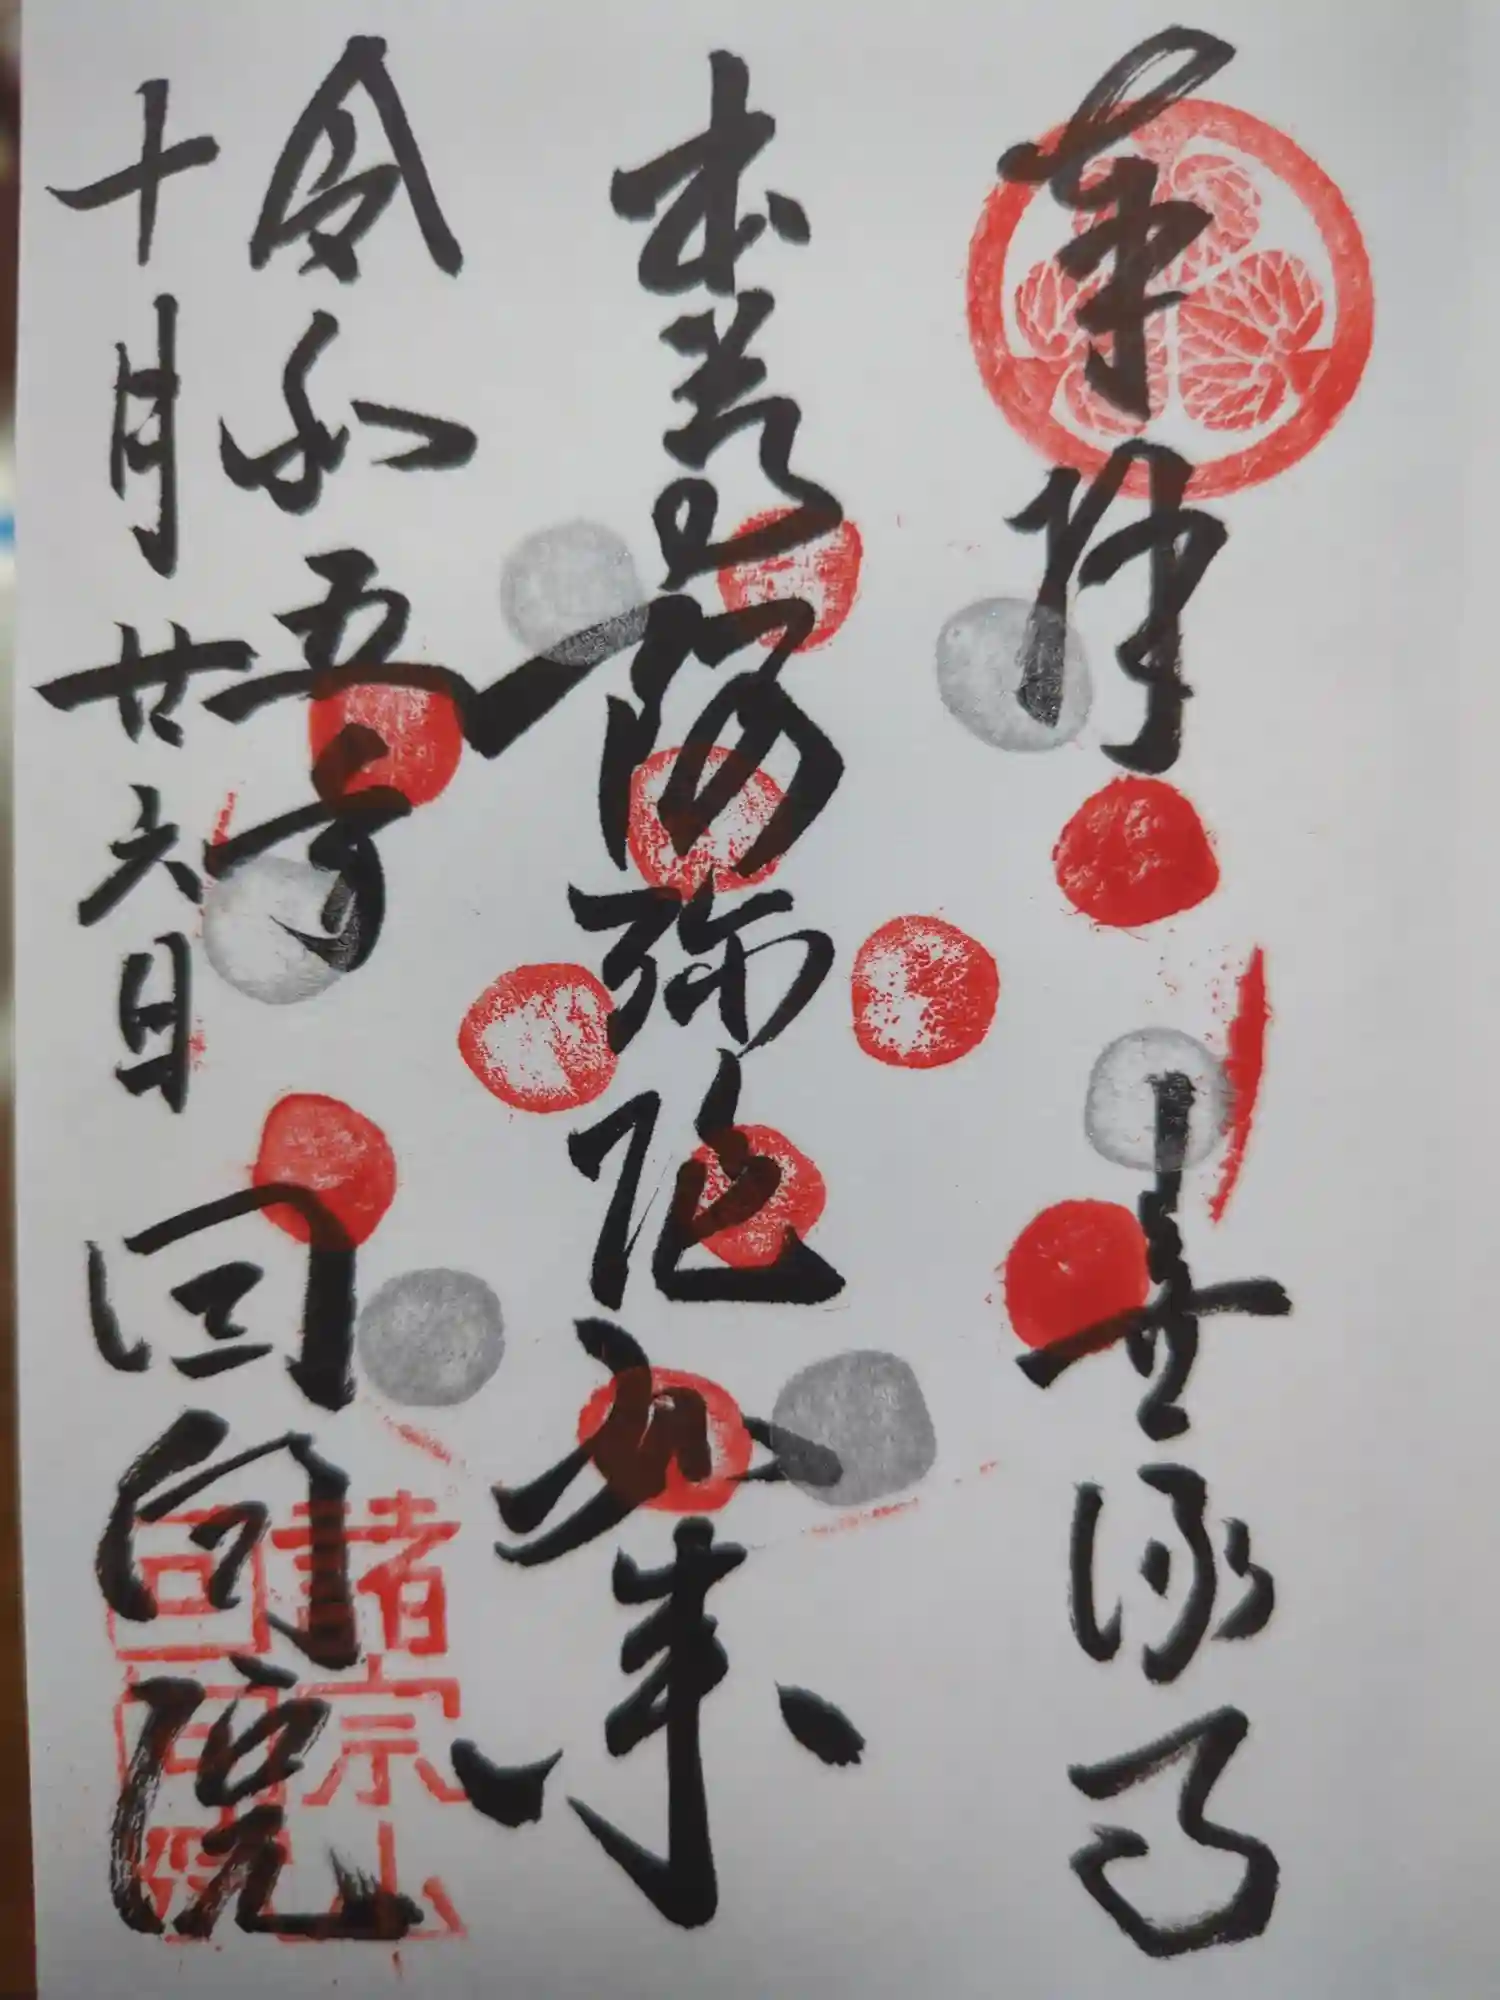 奉拝 無縁寺
本尊阿弥陀如来
令和五年
十月廿六日 回向院
諸宗山
回向院